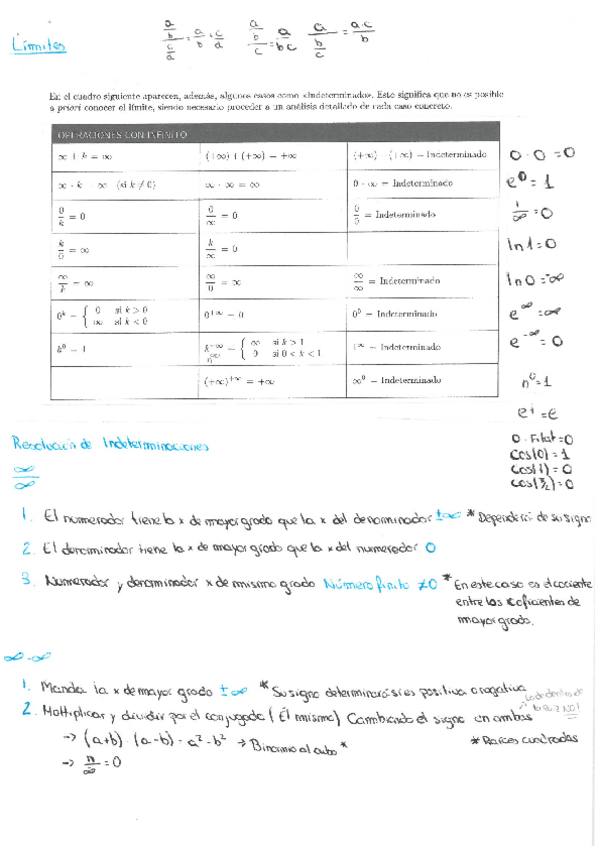 Límites
a/b / c/d = a/b · c/d
a/b / c = a/bc
a / b/c = a·c/b
En el cuadro siguiente aparecen, además, algunos casos como «Indeterminado». Esto significa que no es posible
a priori conocer el límite, siendo necesario proceder a un análisis detallado de cada caso concreto.
OPERACIONES CON INFINITO
∞ ± k = ∞ (+∞) + (+∞) = +∞ (+∞) − (+∞) = Indeterminado
∞ · k = ∞ (si k ≠ 0) ∞ · ∞ = ∞ 0 · ∞ = Indeterminado
0/k = 0 0/∞ = 0 0/0 = Indeterminado
k/0 = ∞ k/∞ = 0
∞/k = ∞ ∞/0 = ∞ ∞/∞ = Indeterminado
0^k = { 0 si k > 0 ∞ si k < 0 0^+∞ = 0 0^0 = Indeterminado
k^0 = 1 k^+∞ = { ∞ si k > 1 0 si 0 < k < 1 1^∞ = Indeterminado
(+∞)^+∞ = +∞ ∞^0 = Indeterminado
0 · 0 = 0
e^0 = 1
1/∞ = 0
ln 1 = 0
ln 0 = -∞
e^∞ = ∞
e^-∞ = 0
n^0 = 1
e^1 = e
cos(0) = 1
cos(1) = 0
Resolución de Indeterminaciones
∞/∞
1. El numerador tiene la x de mayor grado que la x del denominador ±∞ * Dependerá de su signo
2. El denominador tiene la x de mayor grado que la x del numerador 0
3. Numerador y denominador x de mismo grado Número finito ≠0 * En este caso es el cociente
entre los coficientes de
mayor grado.
∞-∞
1. Manda la x de mayor grado ±∞ * Su signo determinará si es positiva o negativa
2. Multiplicar y dividir por el conjugado (El mismo) Cambiando el signo en ambas
→ (a+b) · (a-b) = a² - b² → Binomio al cubo *
* Raíces cuadradas
→ n/∞ = 0